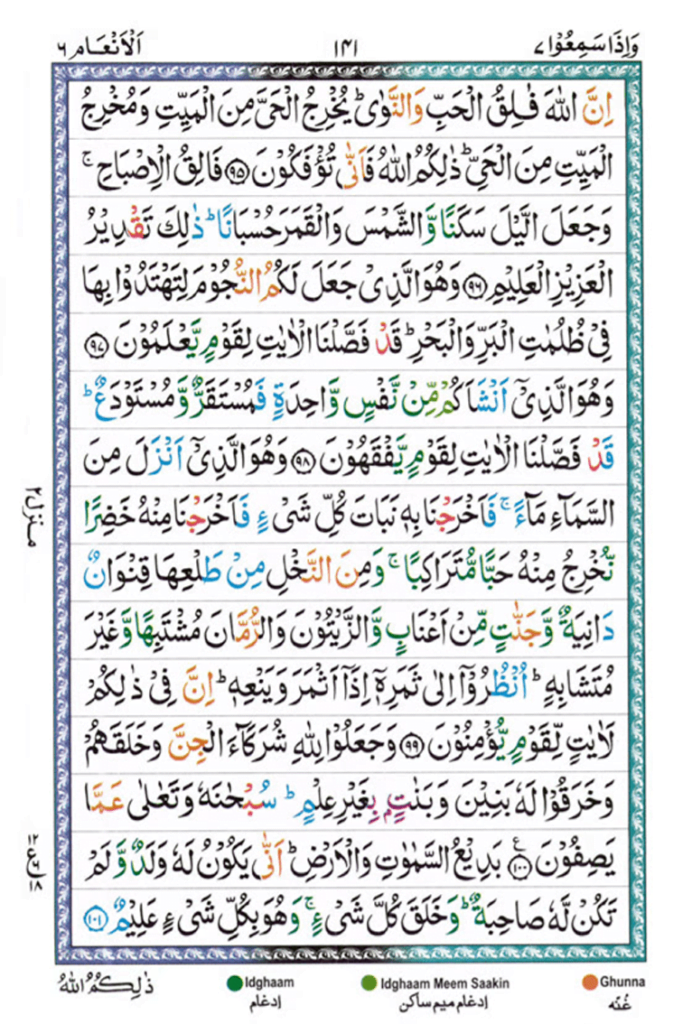 وَاِذَا سَمِعُوْا ٧ ١٤١ اَلْاَنْعَام ٦
اِنَّ اللّٰهَ فٰلِقُ الْحَبِّ وَالنَّوٰىؕ يُخْرِجُ الْحَىَّ مِنَ الْمَيِّتِ وَمُخْرِجُ
الْمَيِّتِ مِنَ الْحَىِّؕ ذٰلِكُمُ اللّٰهُ فَاَنّٰى تُؤْفَكُوْنَ ٩٥ فَالِقُ الْاِصْبَاحِۚ
وَجَعَلَ الَّيْلَ سَكَنًا وَّالشَّمْسَ وَالْقَمَرَ حُسْبَانًاؕ ذٰلِكَ تَقْدِيْرُ
الْعَزِيْزِ الْعَلِيْمِ ٩٦ وَهُوَ الَّذِىْ جَعَلَ لَكُمُ النُّجُوْمَ لِتَهْتَدُوْا بِهَا
فِىْ ظُلُمٰتِ الْبَرِّ وَالْبَحْرِؕ قَدْ فَصَّلْنَا الْاٰيٰتِ لِقَوْمٍ يَّعْلَمُوْنَ ٩٧
وَهُوَ الَّذِىْۤ اَنْشَاَكُمْ مِّنْ نَّفْسٍ وَّاحِدَةٍ فَمُسْتَقَرٌّ وَّمُسْتَوْدَعٌؕ
قَدْ فَصَّلْنَا الْاٰيٰتِ لِقَوْمٍ يَّفْقَهُوْنَ ٩٨ وَهُوَ الَّذِىْۤ اَنْزَلَ مِنَ
السَّمَآءِ مَآءًۚ فَاَخْرَجْنَا بِهٖ نَبَاتَ كُلِّ شَىْءٍ فَاَخْرَجْنَا مِنْهُ خَضِرًا
نُّخْرِجُ مِنْهُ حَبًّا مُّتَرَاكِبًاۚ وَمِنَ النَّخْلِ مِنْ طَلْعِهَا قِنْوَانٌ
دَانِيَةٌ وَّجَنّٰتٍ مِّنْ اَعْنَابٍ وَّالزَّيْتُوْنَ وَالرُّمَّانَ مُشْتَبِهًا وَّغَيْرَ
مُتَشَابِهٍؕ اُنْظُرُوْۤا اِلٰى ثَمَرِهٖۤ اِذَاۤ اَثْمَرَ وَيَنْعِهٖؕ اِنَّ فِىْ ذٰلِكُمْ
لَاٰيٰتٍ لِّقَوْمٍ يُّؤْمِنُوْنَ ٩٩ وَجَعَلُوْا لِلّٰهِ شُرَكَآءَ الْجِنَّ وَخَلَقَهُمْ
وَخَرَقُوْا لَهٗ بَنِيْنَ وَبَنٰتٍۢ بِغَيْرِ عِلْمٍؕ سُبْحٰنَهٗ وَتَعٰلٰى عَمَّا
يَصِفُوْنَ ١٠٠ بَدِيْعُ السَّمٰوٰتِ وَالْاَرْضِؕ اَنّٰى يَكُوْنُ لَهٗ وَلَدٌ وَّلَمْ
تَكُنْ لَّهٗ صَاحِبَةٌؕ وَخَلَقَ كُلَّ شَىْءٍۚ وَهُوَ بِكُلِّ شَىْءٍ عَلِيْمٌ ١٠١
منزل ٢
١٢
ع ٦
١٨
ذٰلِكُمُ اللّٰهُ
Idghaam
ادغام
Idghaam Meem Saakin
ادغام میم ساکن
Ghunna
غُنّه